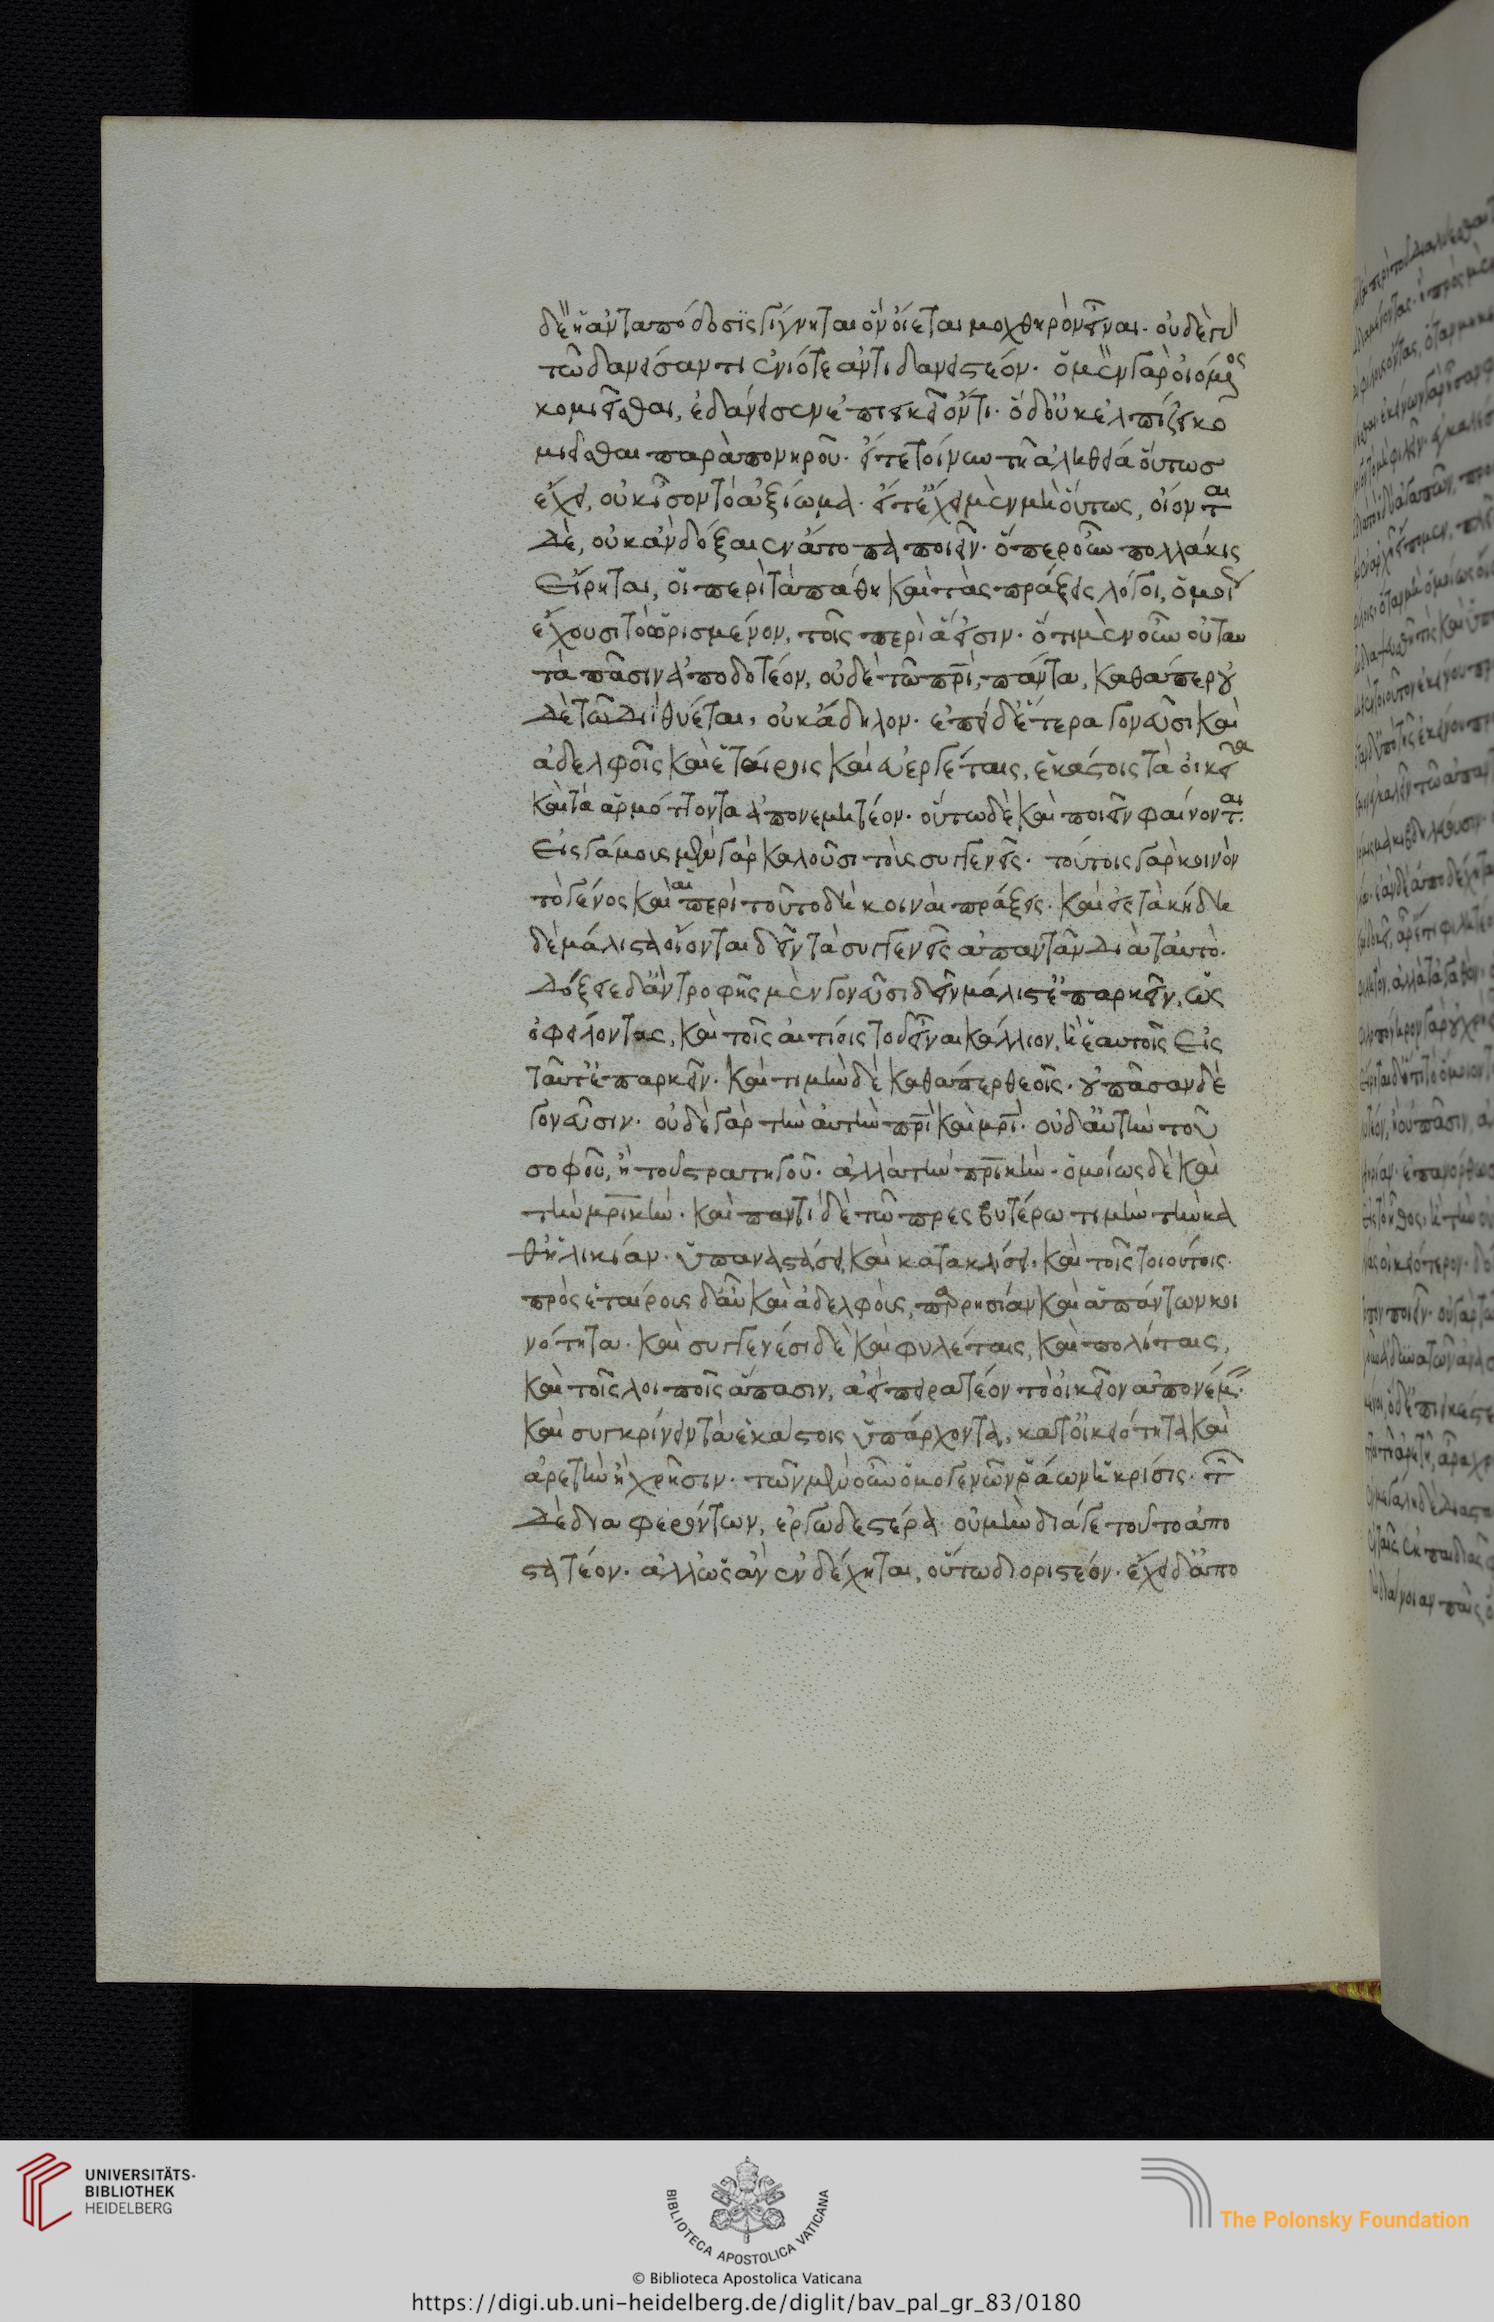 δὲ ἡ ἀνταπόδοσις γίγνηται ὃν οἴεται μοχθηρὸν εἶναι. οὐδὲ γὰρ
τῶ δανείσαντι ἐνίοτε ἀντιδανειστέον. ὁ μὲν γὰρ οἰόμενος
κομιεῖσθαι, ἐδάνεισεν ἐπιεικεῖ ὄντι. ὁ δ' οὐκ ἐλπίζει κο
μιεῖσθαι παρὰ πονηροῦ. εἴτε τοίνυν τῆ ἀληθεία οὕτως
ἔχει, οὐκ ἴσον τὸ ἀξίωμα. εἴτ' ἔχει μὲν μὴ οὕτως, οἴονται
δὲ, οὐκ ἂν δόξαιεν ἄτοπα ποιεῖν. ὅπερ οὖν πολλάκις
εἴρηται, οἱ περὶ τὰ πάθη καὶ τὰς πράξεις λόγοι, ὁμοίως
ἔχουσι τὸ ὡρισμένον, τοῖς περὶ ἅ εἰσιν. ὅτι μὲν οὖν οὐ ταυ
τὰ πᾶσιν ἀποδοτέον, οὐδὲ τῶ πρὶ, πάντα, καθάπερ οὐ
δὲ τῶ Διὶ θύεται, οὐκ ἄδηλον. ἐπεὶ δ' ἕτερα γονεῦσι καὶ
ἀδελφοῖς καὶ ἑταίροις καὶ εὐεργέταις, ἑκάστοις τὰ οἰκεῖα
καὶ τὰ ἁρμόττοντα ἀπονεμητέον. οὕτω δὲ καὶ ποιεῖν φαίνονται.
εἰς γάμους μὲν γὰρ καλοῦσι τοὺς συγγενεῖς. τούτοις γὰρ κοινὸν
τὸ γένος καὶ αἱ περὶ τοῦτο δὴ κοιναὶ πράξεις. καὶ εἰς τὰ κήδη
δὲ μάλιστα οἴονται δεῖν τὰ συγγενεῖς ἀπαντᾶν διὰ ταυτὸ.
δόξειε δ' ἂν τροφῆς μὲν γονεῦσι δεῖν μάλιστ' ἐπαρκεῖν, ὡς
ὀφείλοντας, καὶ τοῖς αἰτίοις τοῦ εἶναι κάλλιον, ἢ ἑαυτοῖς εἰς
ταῦτ' ἐπαρκεῖν. καὶ τιμὴν δὲ καθάπερ θεοῖς. οὐ πᾶσαν δὲ
γονεῦσιν. οὐδὲ γὰρ τὴν αὐτὴν πρὶ καὶ μρὶ. οὐδ' αὖ τὴν τοῦ
σοφοῦ, ἢ τοῦ στρατηγοῦ. ἀλλὰ τὴν πρικὴν. ὁμοίως δὲ καὶ
τὴν μρικὴν. καὶ παντὶ δὲ τῶ πρεσβυτέρω τιμὴν τὴν κα
θ' ἡλικίαν. ὑπαναστάσει καὶ κατακλίσει. καὶ τοῖς τοιούτοις.
πρὸς ἑταίρους δ' αὖ καὶ ἀδελφοὺς, παρρησίαν καὶ ἁπάντων κοι
νότητα. καὶ συγγενέσι δὲ καὶ φυλέταις, καὶ πολίταις,
καὶ τοῖς λοιποῖς ἅπασιν, ἀεὶ πειρατέον τὸ οἰκεῖον ἀπονέμειν.
καὶ συγκρίνειν τὰ ἑκάστοις ὑπάρχοντα, κατ' οἰκειότητα καὶ
ἀρετὴν ἢ χρῆσιν. τῶν μὲν οὖν ὁμογενῶν ῥάων ἡ κρίσις. τῶν
δὲ διαφερόντων, ἐργωδεστέρα. οὐ μὴν διά γε τοῦτο ἀπο
στατέον. ἀλλ' ὡς ἂν ἐνδέχηται, οὕτω διοριστέον. ἔχει δ' ἀπο
UNIVERSITÄTS-
BIBLIOTHEK
HEIDELBERG
BIBLIOTECA APOSTOLICA VATICANA
The Polonsky Foundation
© Biblioteca Apostolica Vaticana
https://digi.ub.uni-heidelberg.de/diglit/bav_pal_gr_83/0180